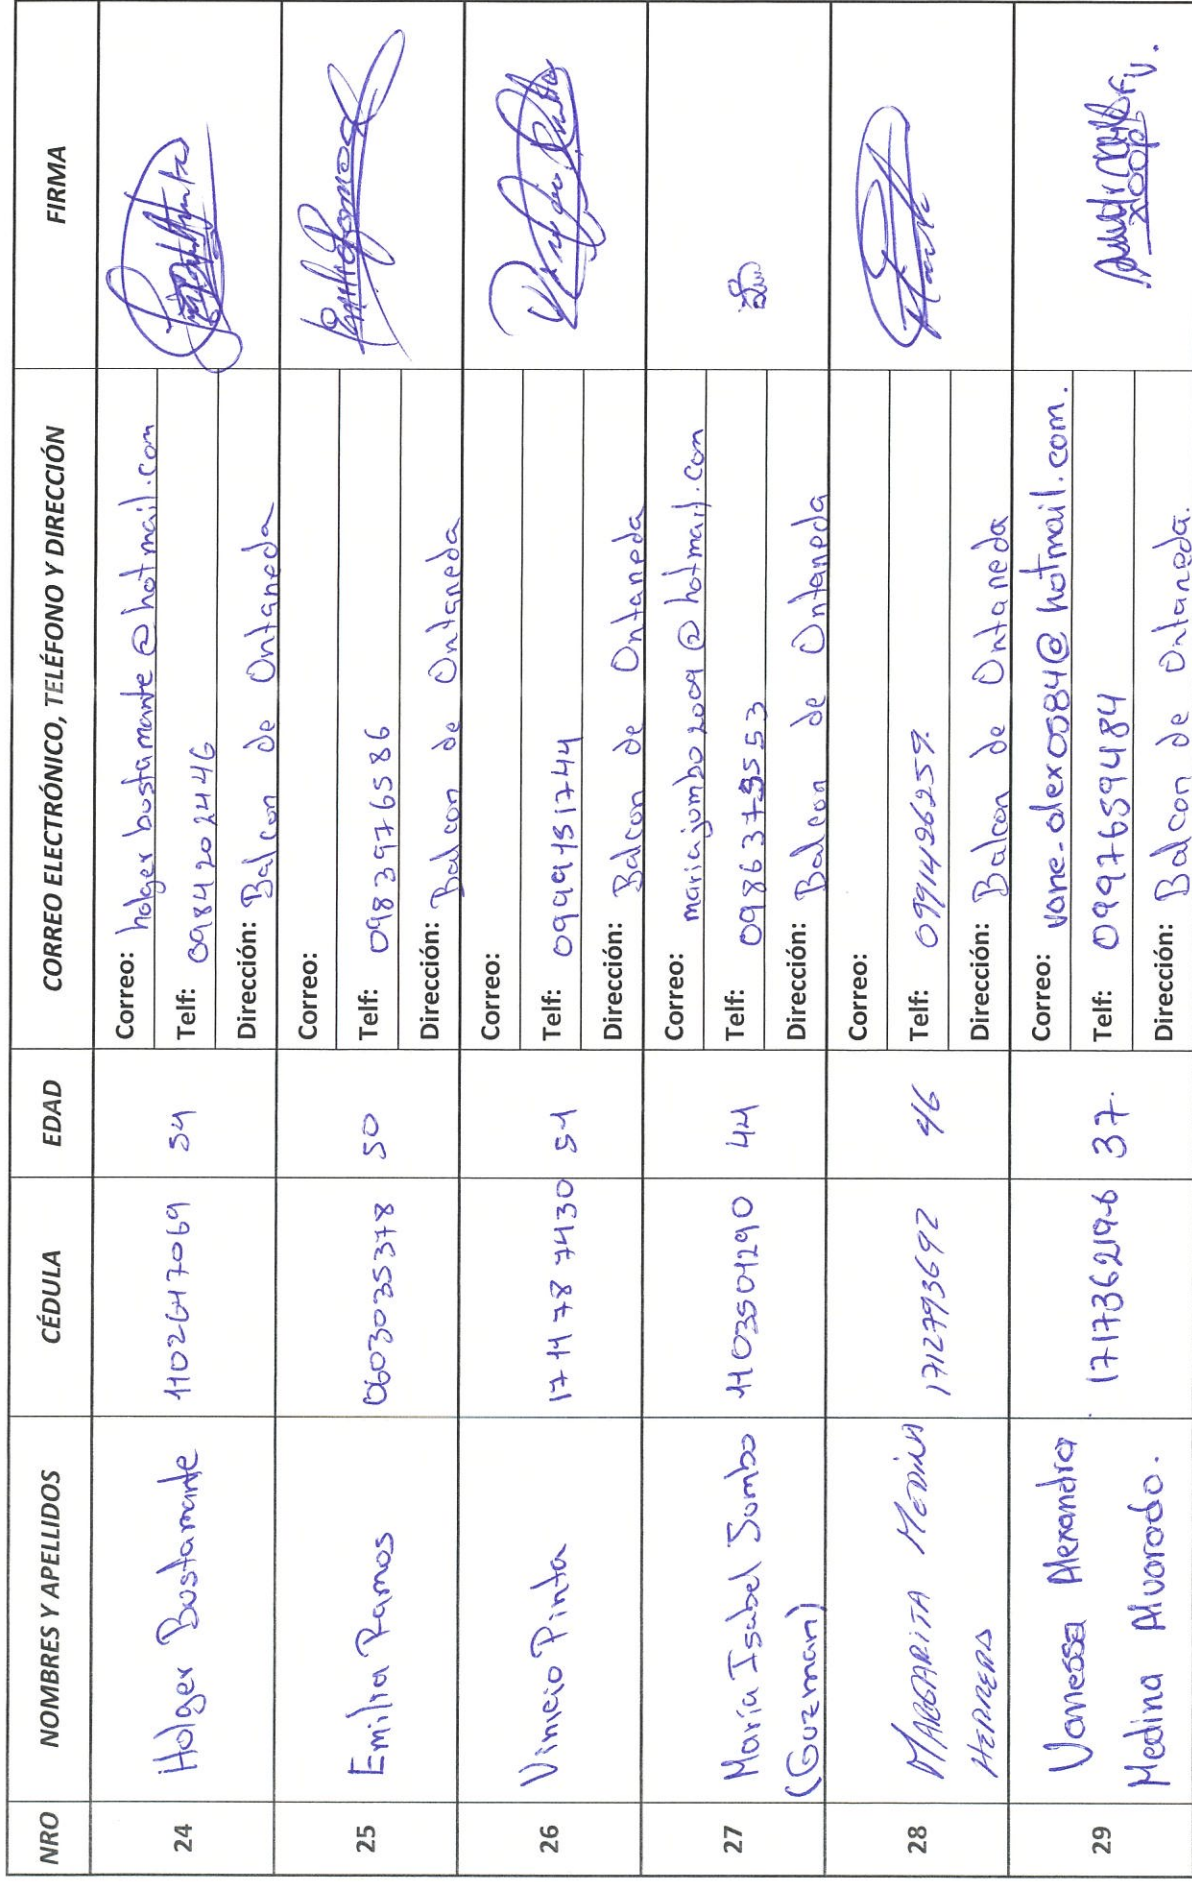 NRO NOMBRES Y APELLIDOS CÉDULA EDAD CORREO ELECTRÓNICO, TELÉFONO Y DIRECCIÓN FIRMA
24 Holger Bustamante 1102647069 54
Correo: holger bustamante @ hotmail.com
Telf: 0984202446
Dirección: Balcon de Ontaneda
25 Emilia Ramos 0603035378 50
Correo:
Telf: 0983976586
Dirección: Balcon de Ontaneda
26 Vinicio Pinta 1714787430 54
Correo:
Telf:
Dirección: Balcon de Ontaneda
27 María Isabel Jumbo
(Guzman)
1103504290 44
Correo: mariajumbo2009@hotmail.com
Telf:
Dirección: Balcon de Ontaneda
28 MARGARITA MEDINA
HERRERA
1712793692 46
Correo:
Telf:
Dirección: Balcon de Ontaneda
29 Vanessa Alexandra
Medina Alvarado.
171736219-6 37.
Correo: vane-alex0584@hotmail.com.
Telf: 0997659484
Dirección: Balcon de Ontaneda.